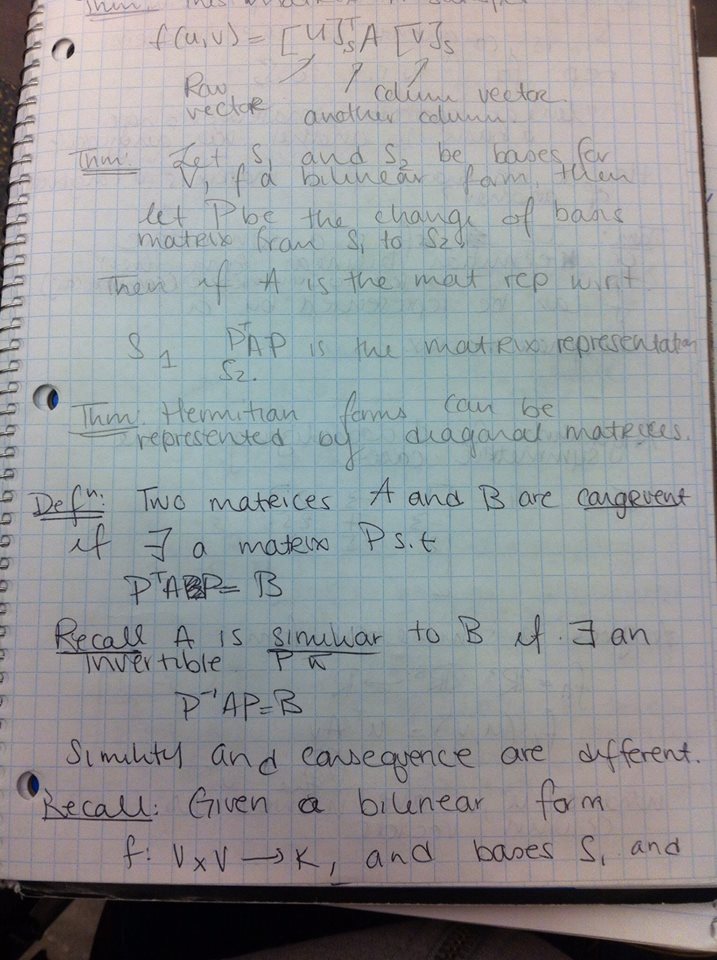 Thm:
f(u,v) = [U]ₛᵀ A [V]ₛ
Row column vector
vector another column.
Thm: Let S₁ and S₂ be bases for
V, f a bilinear form, then
let P be the change of basis
matrix from S₁ to S₂
Then if A is the mat rep w.r.t
S₁ PᵀAP is the matrix representation
S₂.
Thm: Hermitian forms can be
represented by diagonal matrices.
Defⁿ: Two matrices A and B are congruent
if ∃ a matrix P s.t
PᵀAP = B
Recall A is similar to B if ∃ an
invertible P
P⁻¹AP=B
Simility and consequence are different.
Recall: Given a bilinear form
f: V x V → K, and bases S₁ and